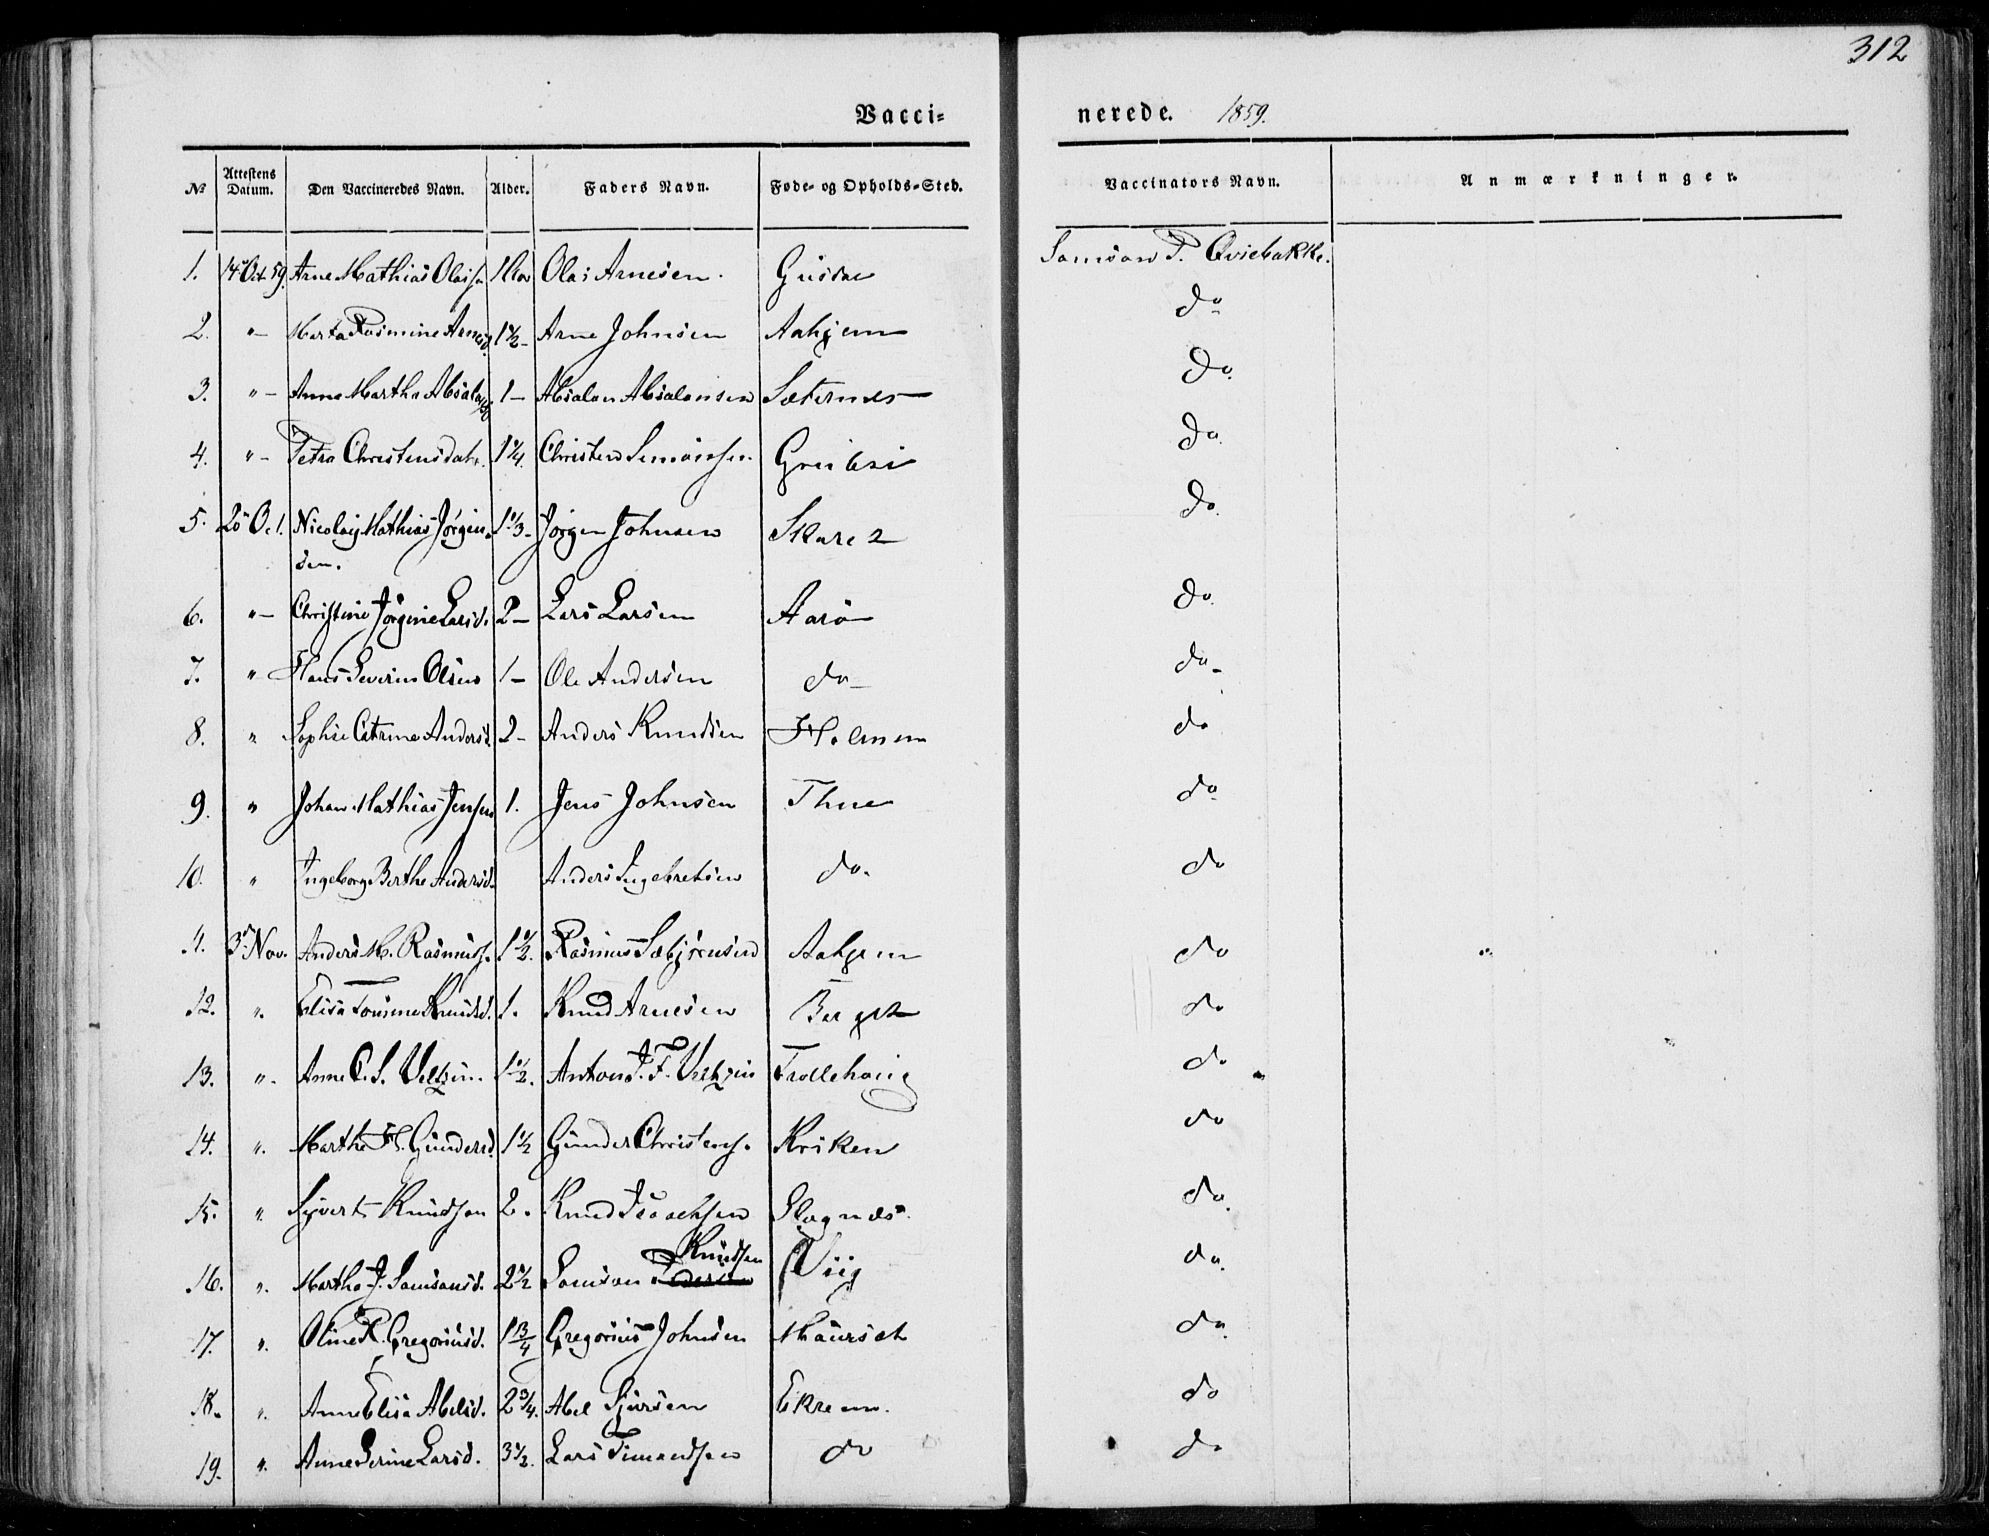 312
Vacci- nerede. 1859.
№ Attestens Datum. Den Vaccineredes Navn. Alder. Faders Navn. Føde- og Opholds-Sted. Vaccinators Navn. Anmærkninger.
1. 14 Oct. 59. Arne Mathias Olais. 1 Olai Arnesen. Gusdal Samson P. Qviebakke.
2. "- Marta Rasmine Arnesd. 1 1/2- Arne Johnsen Aahjem do-
3. "- Anne Martha Absalonsd 1- Absalon Absalonsen Sæternes do.
4. "- Petra Christensdatr. 1 1/4. Christen Simonsen do.
5. 20 Oct. Nicolaij Mathias Jørgen- 1 1/3- Jørgen Johnsen Skare 2 do.
sen.
6. "- Christine Jørgine Larsd. 2- Lars Larsen Aarø do.
7. " Hans Severin Olsen 1- Ole Andersen do- do-
8. " Sophie Catrine Andersd. 2- Anders Knudsen Holmen do
9. " Johan Mathias Jensen 1. Jens Johnsen Thue do
10. " Ingeborg Berthe Andersd. Anders Ingebretsen do. do
11. 3 Nov. Anders M. Rasmuss. 1 1/2. Rasmus Sæbjørnsen Aahjem do
12. ". Elisa Knudsd. 1. Knud Arnesen Berget do
13. ". Anne C. S. Veltzin. 1 1/2. Anton J. F. Veltzin Trollehoug do
14. ". Martha H. Gundersd. 1 1/2 Gunder Christens. Kriken do
15. ". Syvert Knudsen 2. Knud Isachsen Slagnæs. do.
Knudsen
16. ". Martha J. Samsonsd. 2 1/2 Samson Pedersen Viig do.
17. ". Oline R. Gregoriusd. 1 13/4 Gregorius Johnsen Maursæt do.
18. ". Anne Elisa Abelsd. 2 3/4. Abel Sjursen Ekrem. do
19. ". Anne Serine Larsd. 3 1/2. Lars Timandsen do do